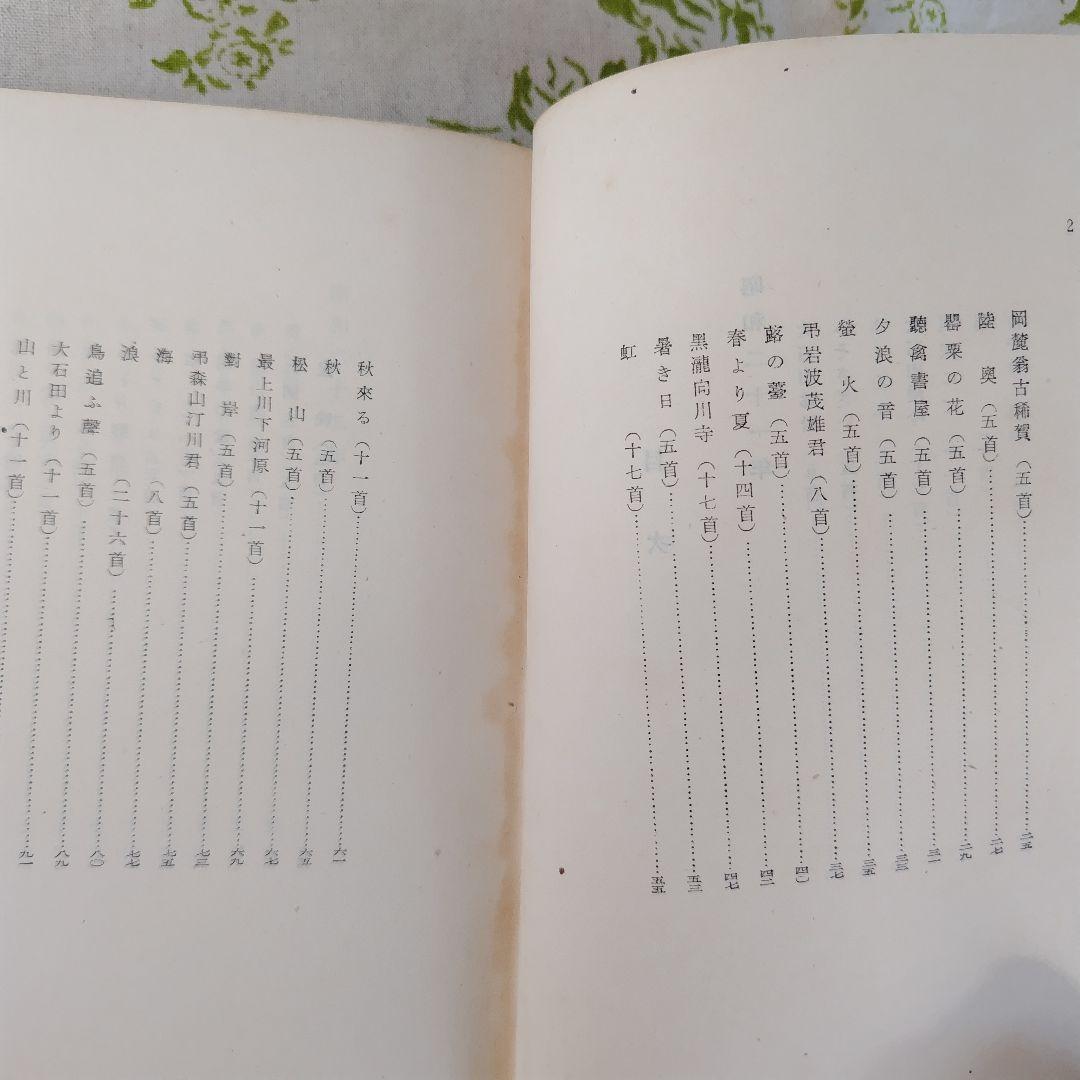 2
岡麓翁古稀賀（五首）……二五
陸奥（五首）……二七
罌粟の花（五首）……二九
聽禽書屋（五首）……三一
夕浪の音（五首）……三三
螢火（五首）……三五
弔岩波茂雄君（八首）……三七
蕗の薹（五首）……四〇
春より夏（十四首）……四二
黑瀧向川寺（十七首）……四七
暑き日（五首）……五三
虹（十七首）……五五
秋來る（十一首）……六一
秋（五首）……六五
松山（五首）……六七
最上川下河原（十一首）……六九
對岸（五首）……七三
弔森山汀川君（五首）……七五
海（八首）……七七
浪（二十六首）……八〇
鳥追ふ聲（五首）……八九
大石田より（十一首）……九一
山と川（十一首）